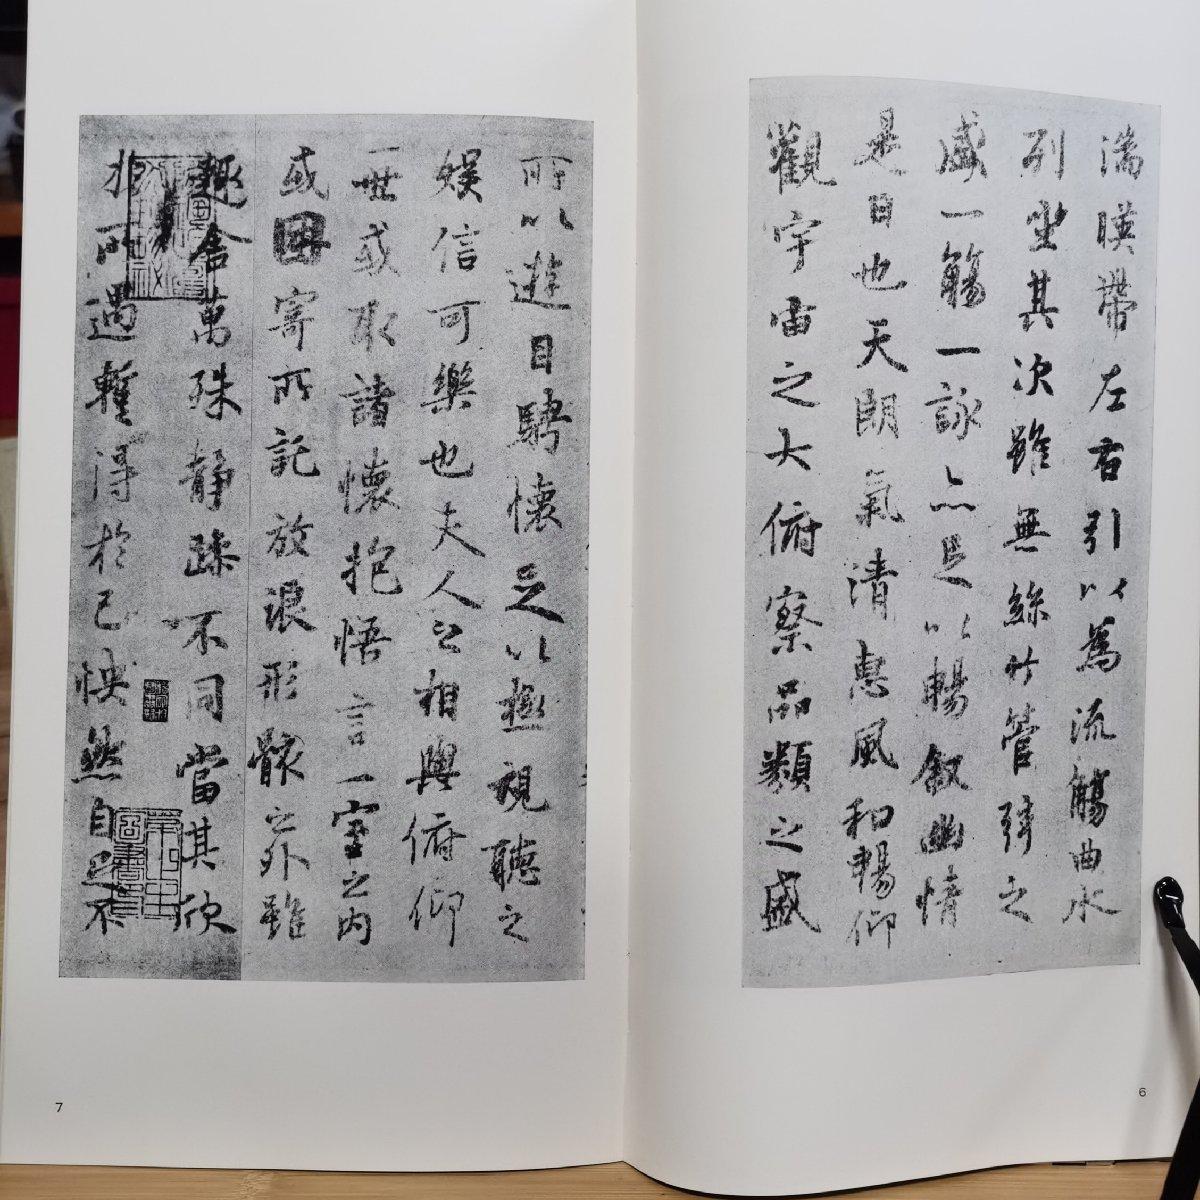 湍暎帶左右引以為流觴曲水
列坐其次雖無絲竹管弦之
盛一觴一詠亦足以暢叙幽情
是日也天朗氣清惠風和暢仰
觀宇宙之大俯察品類之盛
6
所以遊目騁懷足以極視聽之
娛信可樂也夫人之相與俯仰
一世或取諸懷抱悟言一室之内
或因寄所託放浪形骸之外雖
趣舍萬殊静躁不同當其欣
於所遇暫得於己怏然自足不
7